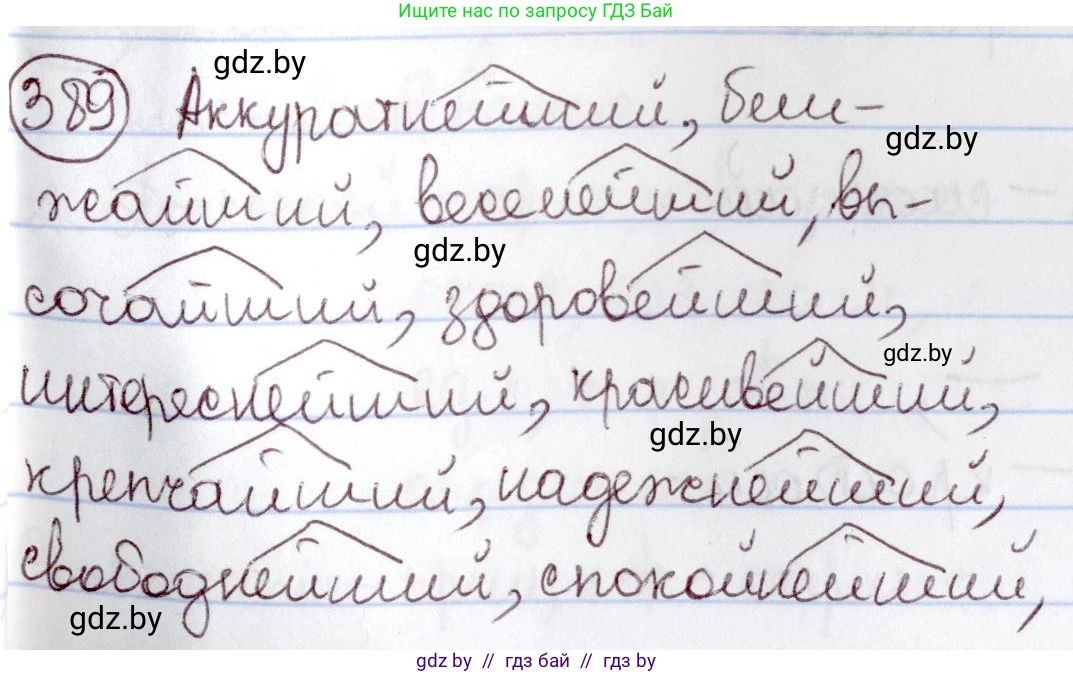 Ищите нас по запросу ГДЗ Бай
gdz.by
389 Аккуратнейший, бли-
gdz.by
жайший, веселейший, вы-
gdz.by
сочайший, здоровейший,
gdz.by
интереснейший, красивейший,
gdz.by
крепчайший, надежнейший,
свободнейший, спокойнейший,
gdz.by
gdz.by // гдз бай // гдз by